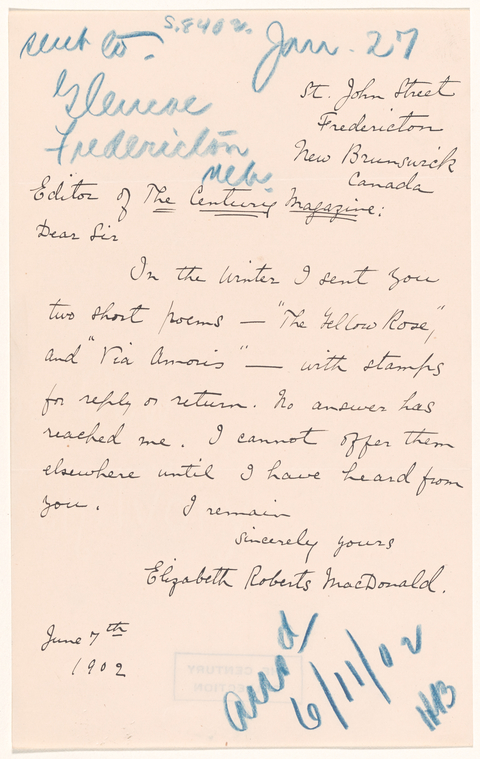 S.8402.
sent to. Jan. 27
Glencoe
Fredericton
St. John Street
Fredericton
New Brunswick
Canada
Editor of The Century Magazine:
Dear Sir
In the Winter I sent you
two short poems — "The Yellow Rose,"
and "Via Amoris" — with stamps
for reply or return. No answer has
reached me. I cannot offer them
elsewhere until I have heard from
you. I remain
Sincerely yours
Elizabeth Roberts MacDonald.
June 7th
1902
ans'd
6/11/02
CENTURY